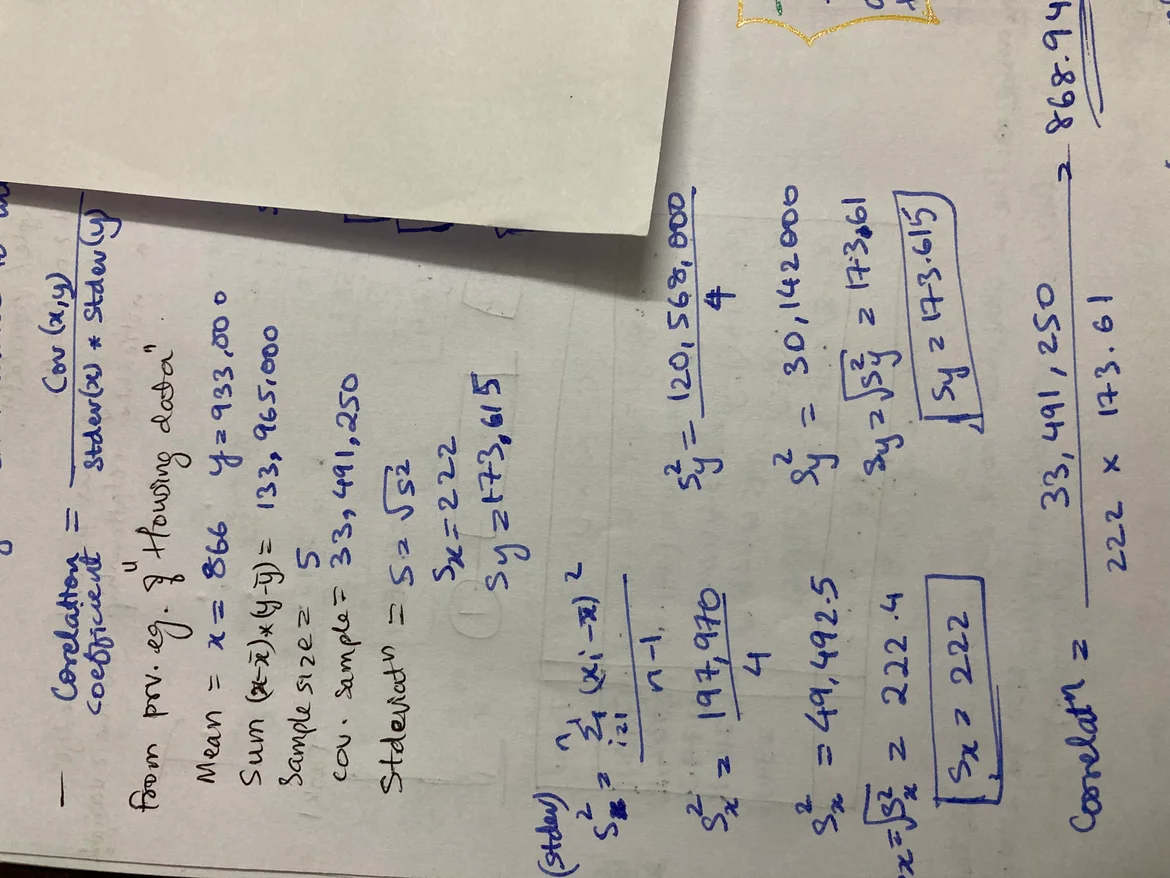 — Corelation coefficient = Cov (x,y) / Stdev(x) * Stdev(y)
from prv. eg. of "Housing data"
Mean = x = 866 y = 933,000
Sum (x-x̄)*(y-ȳ) = 133,965,000
Sample size = 5
cov. sample = 33,491,250
Stdeviatn = S = √S²
Sx = 222
Sy = 173,615
(stdev)
S²x = n Σ i=1 (xi - x̄)² / n-1
S²x = 197,970 / 4
S²y = 120,568,000 / 4
S²x = 49,492.5
S²y = 30,142000
x = √S²x = 222.4
Sy = √S²y = 173,61
Sx = 222
Sy = 173.615
Coorelatn = 33,491,250 / 222 x 173.61 = 868.94